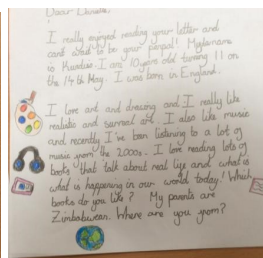 I really enjoyed reading your letter and
cant wait to be your penpal! My name
is I am 10 years old turning 11 on
the 14th May. I was born in England.
I love art and drawing and I really like
realistic and surreal art. I also like music
and recently I've been listening to a lot of
music from the 2000s. I love reading lots of
books that talk about real life and what is
what is happening in our world today! Which
books do you like? My parents are
Zimbabwean. Where are you from?